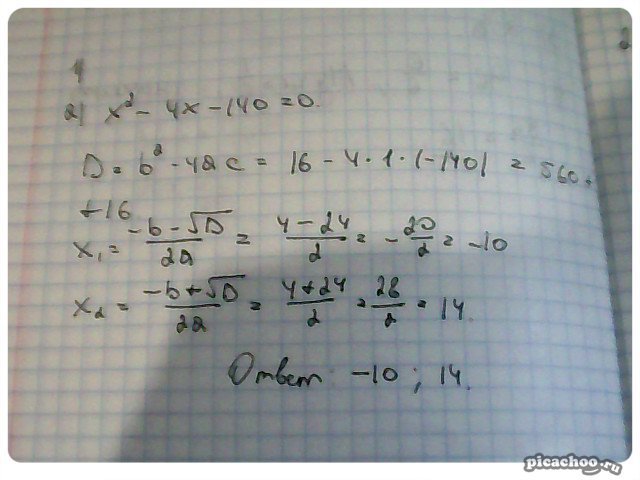 1
2) x² - 4x - 140 = 0.
D = b² - 4ac = 16 - 4 · 1 · (-140) = 560 +
+16
x₁ = (-b - √D)/2a = (4 - 24)/2 = -20/2 = -10
x₂ = (-b + √D)/2a = (4 + 24)/2 = 28/2 = 14.
Ответ -10 ; 14.
picachoo.ru